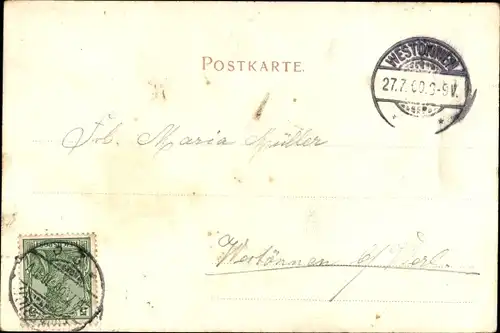 WESTÖNNEN
27.7.00.8-9V.
* *
POSTKARTE.
Frl. Maria Müller
Westönnen b/ Werl.